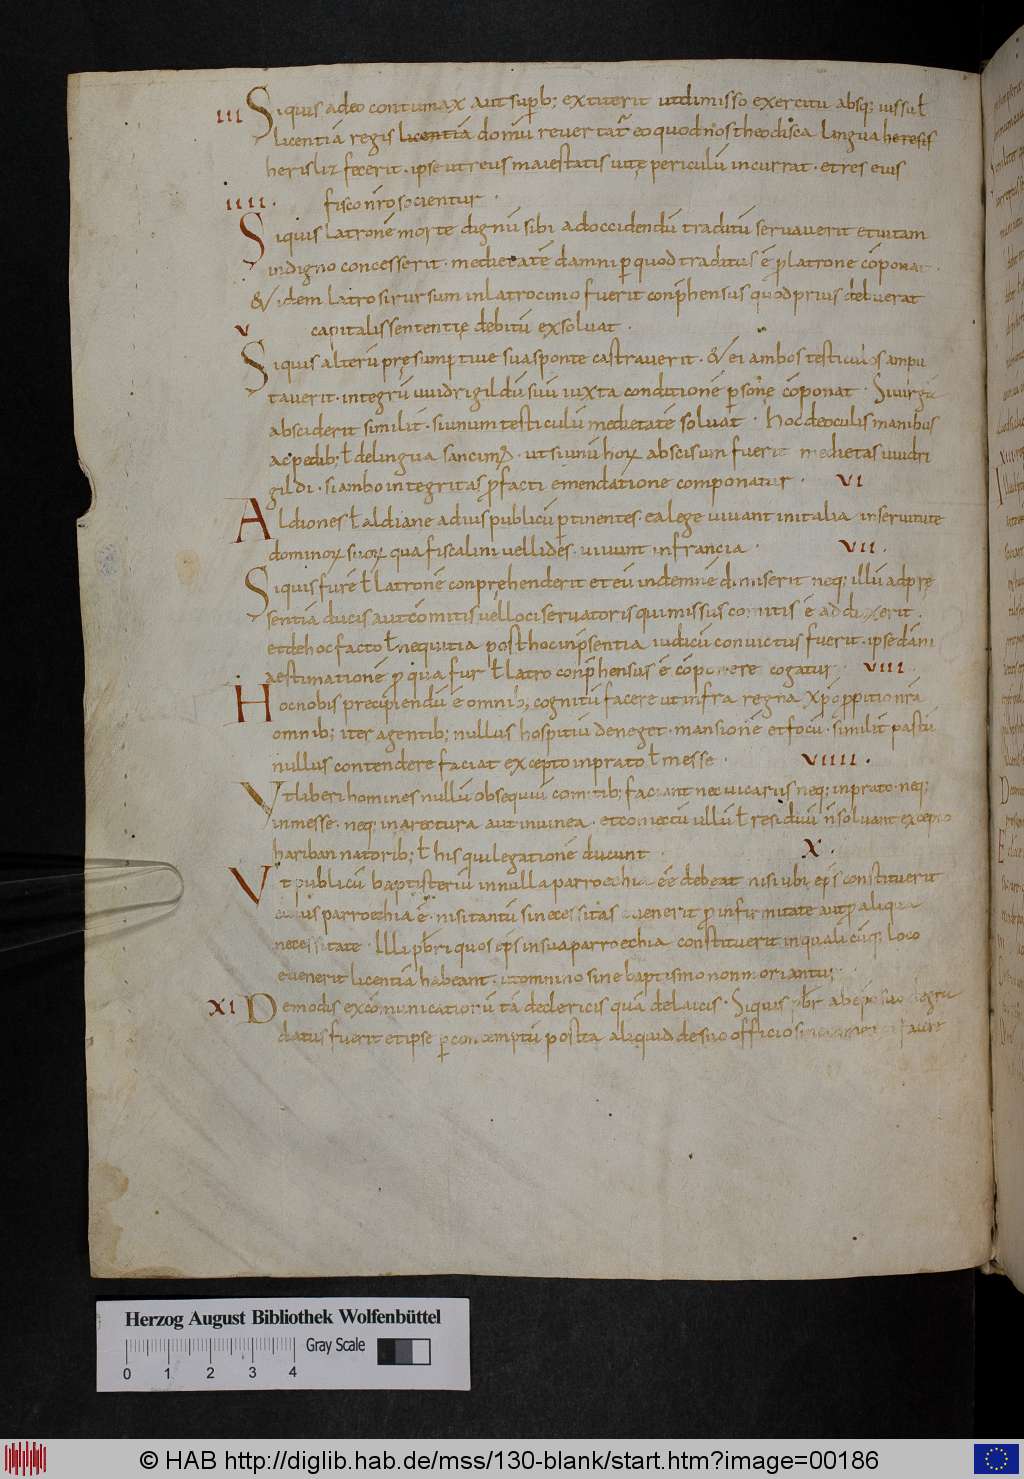 III Siquis adeo contumax aut supb; extiterit ut dimisso exercitu absq; iussu ł
licentiā regis licentiā domū revertat̄ eo quod nos theodisca lingua heresis
herisliz fecerit · ipse ut reus maiestatis uitę periculū incurrat · et res eius
IIII. fisco nr̄o socientur ·
Siquis latronē morte dignū sibi ad occidendū traditū servaverit et uitam
indigno concesserit · medietatē damni p quod traditus ē p latrone cōponat ·
& idem latro si rursum in latrocinio fuerit conp̄hensus quod prius debuerat
V capitalis sententię debitū exsolvat ·
Siquis alterū pręsumptive sua sponte castraverit · & ei ambos testiculos ampu
taverit · integrū vvidrigildū suū iuxta conditionē psonę cōponat · Si virgā
absciderit similit̄ · si unum testiculū medietatē solvat · hoc de oculis manibus
ac pedib; ł de lingua sancim⁹ · ut si unū hoꝝ abscisum fuerit medietas vvidri
gildi · si ambo integritas p facti emendatione componatur · VI
Aldiones ł aldiane ad ius publicū ptinentes · ea lege vivant in italia in servitute
dominoꝝ suoꝝ qua fiscalini vel lides · vivunt in francia · VII ·
Siquis furē ł latronē conprehenderit et eū indemnē dimiserit neq; illū ad prę
sentiā ducis aut comitis vel loci servatoris qui missus comitis ē adduxerit ·
et de hoc facto ł nequitia post hoc in p̄sentia iudicū convictus fuerit · ipse dāni
aestimationē p qua fur ł latro conp̄hensus ē cōponere cogatur · VIII ·
Hoc nobis precipiendū ē omnib; cognitū facere ut infra regna xp̄o ppitio nr̄a
omnib; iter agentib; nullus hospitiū deneget · mansionē et focū · similit̄ pastū
nullus contendere faciat excepto in prato ł messe · VIIII ·
Vt liberi homines nullū obsequiū comitib; faciant nec vicariis neq; in prato · neq;
in messe · neq; in aratura aut in vinea · et coniectū ullū ł residuū n̄ solvant excepto
haribannatorib; ł his qui legationē ducunt · X ·
Vt publicū baptisteriū in nulla parroechia ēe debeat nisi ubi ep̄s constituerit
cuius parroechia ē · nisi tantū si necessitas evenerit p infirmitate aut p aliqua
necessitate · Illi pb̄ri quos ep̄s in sua parroechia constituerit in quali cūq; loco
evenerit licentiā habeant · ut omnino sine baptismo non moriantur ·
XI De modis excōmunicatiorū tā de clericis quā de laicis · Siquis pb̄r ab ep̄o suo degra
datus fuerit et ipse p contemptū postea aliquid de suo officio facere
Herzog August Bibliothek Wolfenbüttel
Gray Scale
0 1 2 3 4
© HAB http://diglib.hab.de/mss/130-blank/start.htm?image=00186